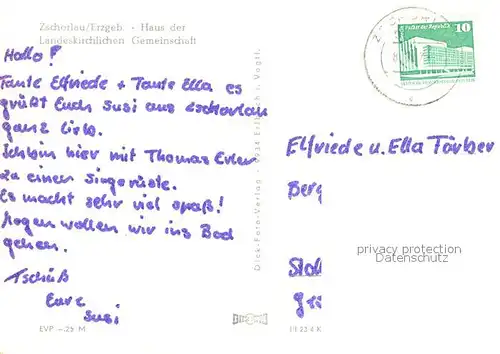 Zschorlau/Erzgeb. - Haus der
Landeskirchlichen Gemeinschaft
Hallo!
Tante Elfriede + Tante Ella es
grüßt Euch Susi aus Zschorlau
ganz lieb.
Ich bin hier mit Thomas
zu einer Singerüste.
Es macht sehr viel spaß!
Morgen wollen wir ins Bad
gehen.
Tschüß
Eure
Susi
EVP -,25 M
Dick-Foto-Verlag - Erlbach i. Vogtl.
10
Elfriede u. Ella Törber
Berg
privacy protection
Datenschutz